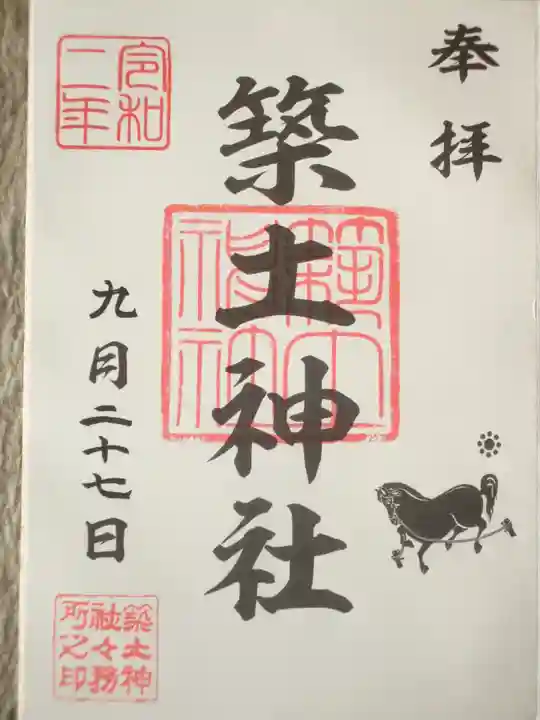 奉拝
築土神社
築土神社
令和二年
九月二十七日
築土神
社々務
所之印